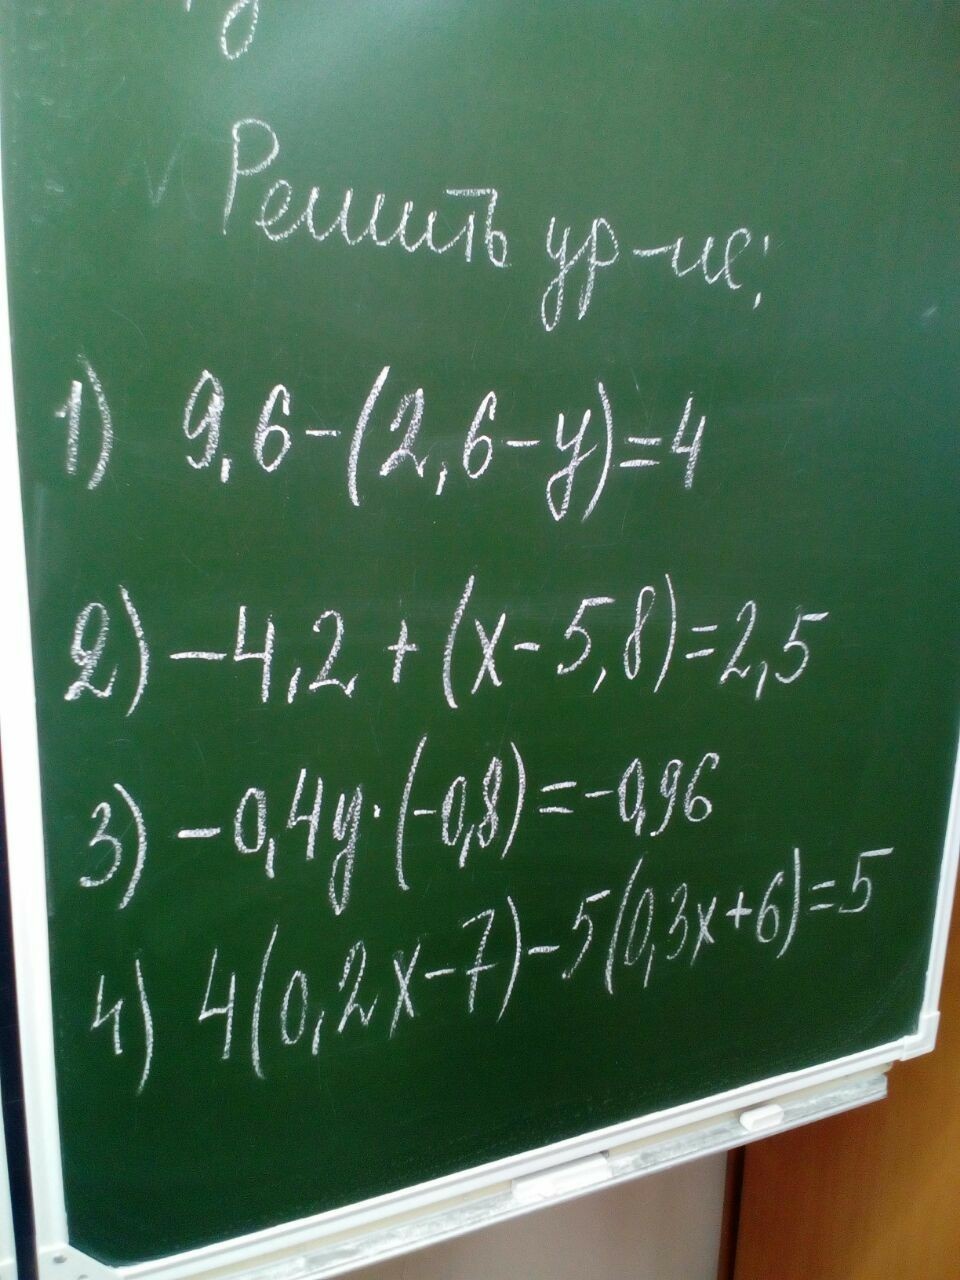 Решить ур-ие:
1) 9,6-(2,6-y)=4
2) -4,2+(x-5,8)=2,5
3) -0,4y·(-0,8)=-0,96
4) 4(0,2x-7)-5(0,3x+6)=5